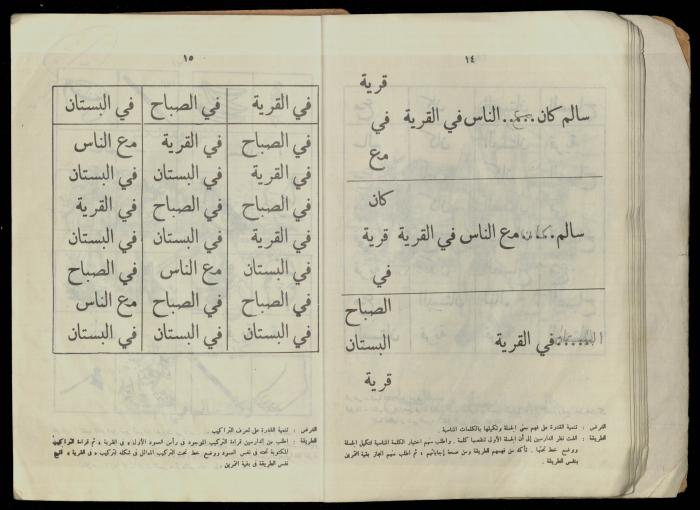 ١٤
قرية
سالم كان ..مع.. الناس في القرية
في
مع
كان
سالم ..كان.. مع الناس في القرية
قرية
في
الصباح
البستان ...... في القرية
البستان
قرية
الغرض : تنمية القدرة على فهم معنى الجملة وتكملتها بالكلمات المناسبة .
الطريقة : الفت نظر الدارسين إلى أن الجملة الأولى تنقصها كلمة . واطلب منهم اختيار الكلمة المناسبة لتكميل الجملة
ووضع خط تحتها . تأكد من فهمهم للطريقة ومن صحة إجاباتهم ، ثم اطلب منهم انجاز بقية التمرين
بنفس الطريقة .
١٥
في القرية في الصباح في البستان
في الصباح في القرية مع الناس
في القرية في البستان في البستان
في الصباح في الصباح في القرية
في القرية في البستان في البستان
في البستان مع الناس في الصباح
في الصباح في الصباح مع الناس
في البستان في البستان في البستان
الغرض : تنمية القدرة على تعرف التراكيب .
الطريقة : اطلب من الدارسين قراءة التركيب الموجود في رأس العمود الأول « في القرية » ثم قراءة التراكيب
المكتوبة تحته في نفس العمود ووضع خط تحت التركيب المماثل في شكله لتركيب « في القرية » اتبع
نفس الطريقة في بقية التمرين